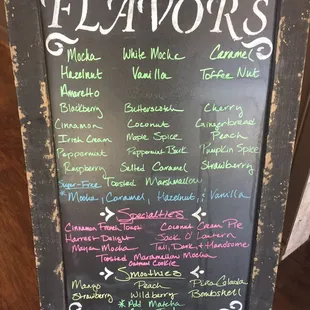 FLAVORS
Mocha White Mocha Caramel
Hazelnut Vanilla Toffee Nut
Amaretto
Blackberry Butterscotch Cherry
Cinnamon Coconut Gingerbread
Irish Cream Maple Spice Peach
Peppermint Peppermint Bark Pumpkin Spice
Raspberry Salted Caramel Strawberry
Sugar-Free Toasted Marshmallow
*Mocha, Caramel, Hazelnut, Vanilla
Specialties
Cinnamon French Toast Coconut Cream Pie
Harvest Delight Jack O' Lantern
Mayan Mocha Tall, Dark, & Handsome
Toasted Marshmallow Mocha
Oatmeal Cookie
Smoothies
Mango Peach Pina Colada
Strawberry Wildberry Bombshell
*Add Matcha